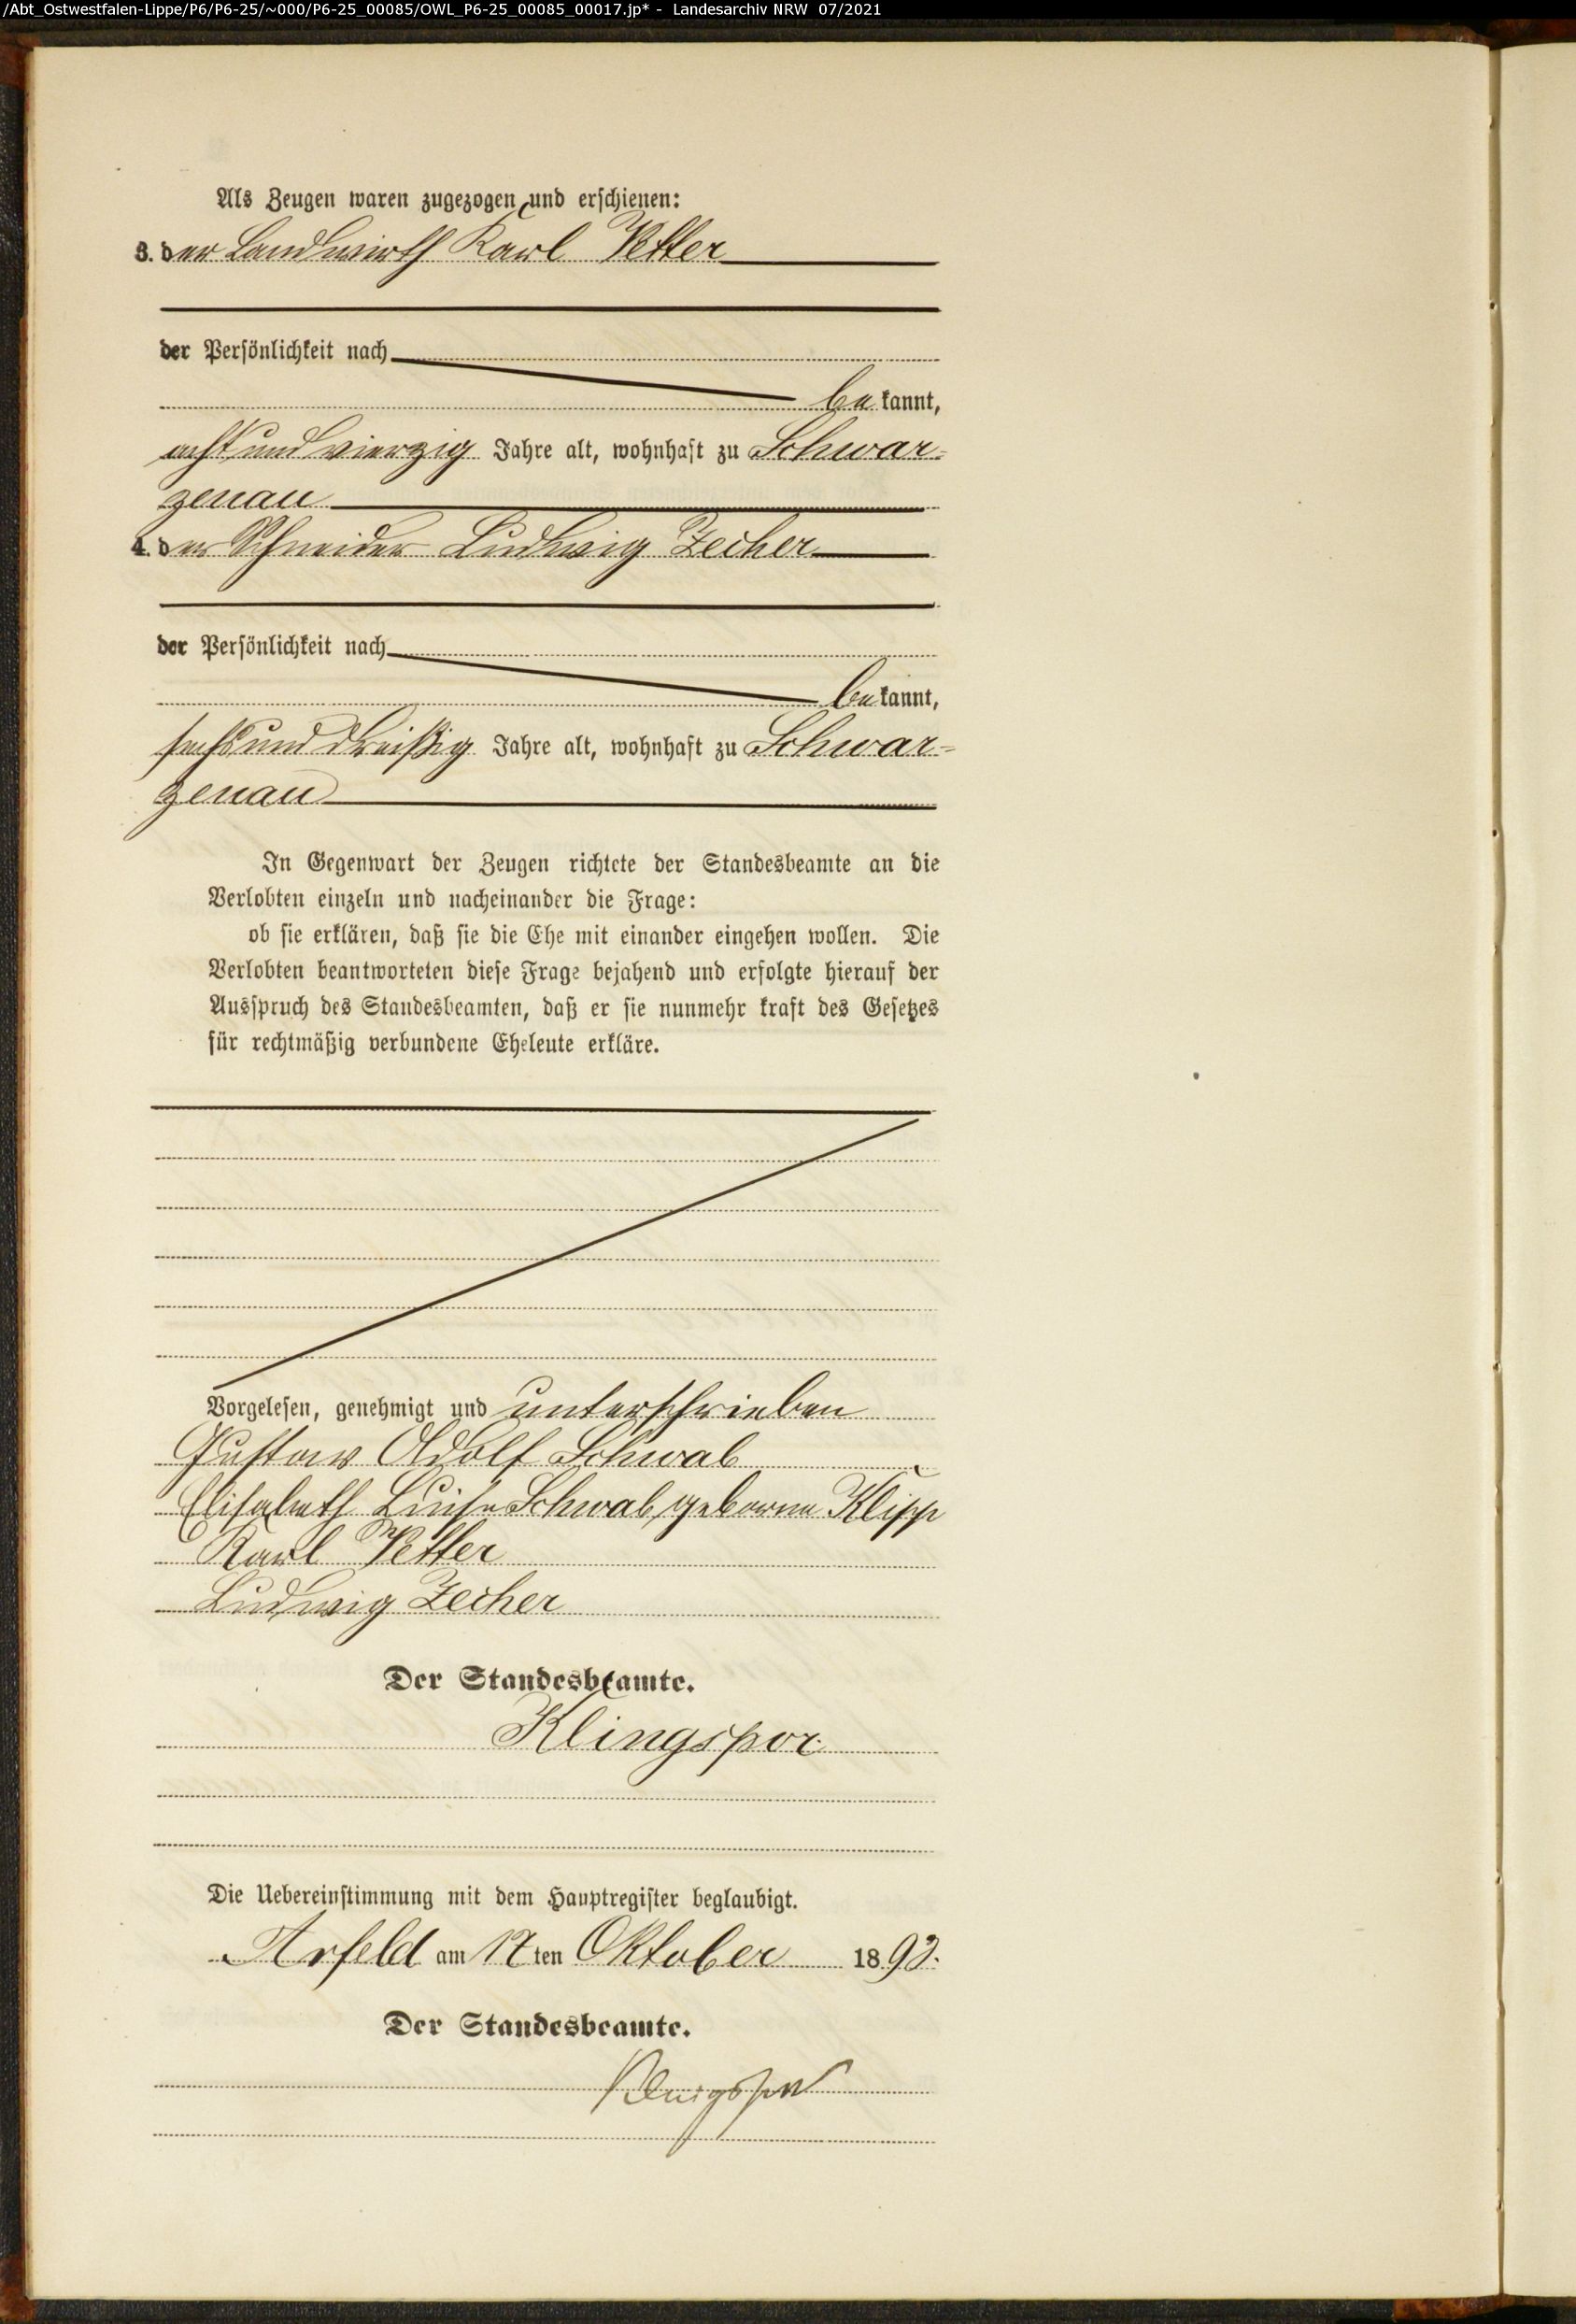 /Abt_Ostwestfalen-Lippe/P6/P6-25/~000/P6-25_00085/OWL_P6-25_00085_00017.jp* - Landesarchiv NRW 07/2021
Als Zeugen waren zugezogen und erschienen:
3. der Landwirth Karl Vetter
der Persönlichkeit nach
bekannt,
achtundvierzig Jahre alt, wohnhaft zu Schwar-
zenau
4. der Schneider Ludwig Zecher
der Persönlichkeit nach
bekannt,
sechsunddreißig Jahre alt, wohnhaft zu Schwar-
zenau
In Gegenwart der Zeugen richtete der Standesbeamte an die
Verlobten einzeln und nacheinander die Frage:
ob sie erklären, daß sie die Ehe mit einander eingehen wollen. Die
Verlobten beantworteten diese Frage bejahend und erfolgte hierauf der
Ausspruch des Standesbeamten, daß er sie nunmehr kraft des Gesetzes
für rechtmäßig verbundene Eheleute erkläre.
Vorgelesen, genehmigt und unterschrieben
Gustav Adolf Schwab
Elisabeth Luise Schwab, geborne Klipp
Karl Vetter
Ludwig Zecher
Der Standesbeamte.
Klingspor
Die Uebereinstimmung mit dem Hauptregister beglaubigt.
Arfeld am 17ten Oktober 1892.
Der Standesbeamte.
Klingspor